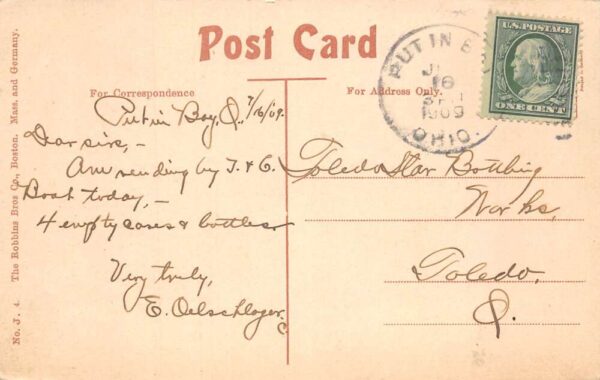 Post Card
For Correspondence
For Address Only.
Put in Bay, O., 7/16/09.
Dear sirs, –
Am sending by T. & C.
Boat today, –
4 empty cases & bottles
Very truly,
E. Oelschlager.
Toledo Star Bottling
Works,
Toledo,
O.
PUT IN
16
1909
OHIO.
U.S. POSTAGE
ONE CENT
No. J. 4. The Robbins Bros Co., Boston, Mass. and Germany.